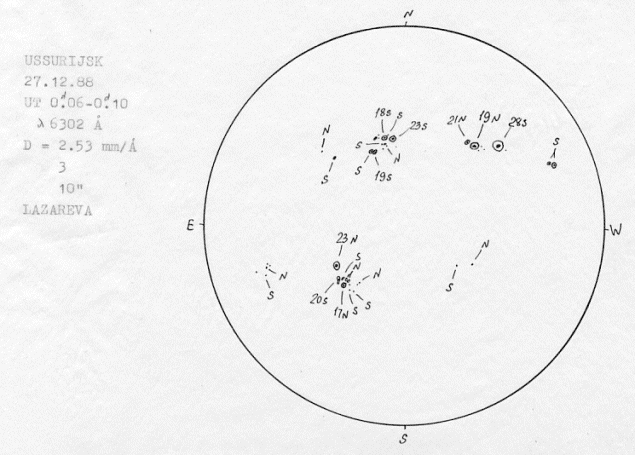 USSURIJSK
27.12.88
UT 0ᵈ.06-0ᵈ.10
λ 6302 Å
D = 2.53 mm/Å
3
10"
LAZAREVA
N
18s S
23s
21N 19N 28s
S
N
S N
S
S 19s
E
W
23N
S
N
N
N
S
20s
17N S S
N
S
S